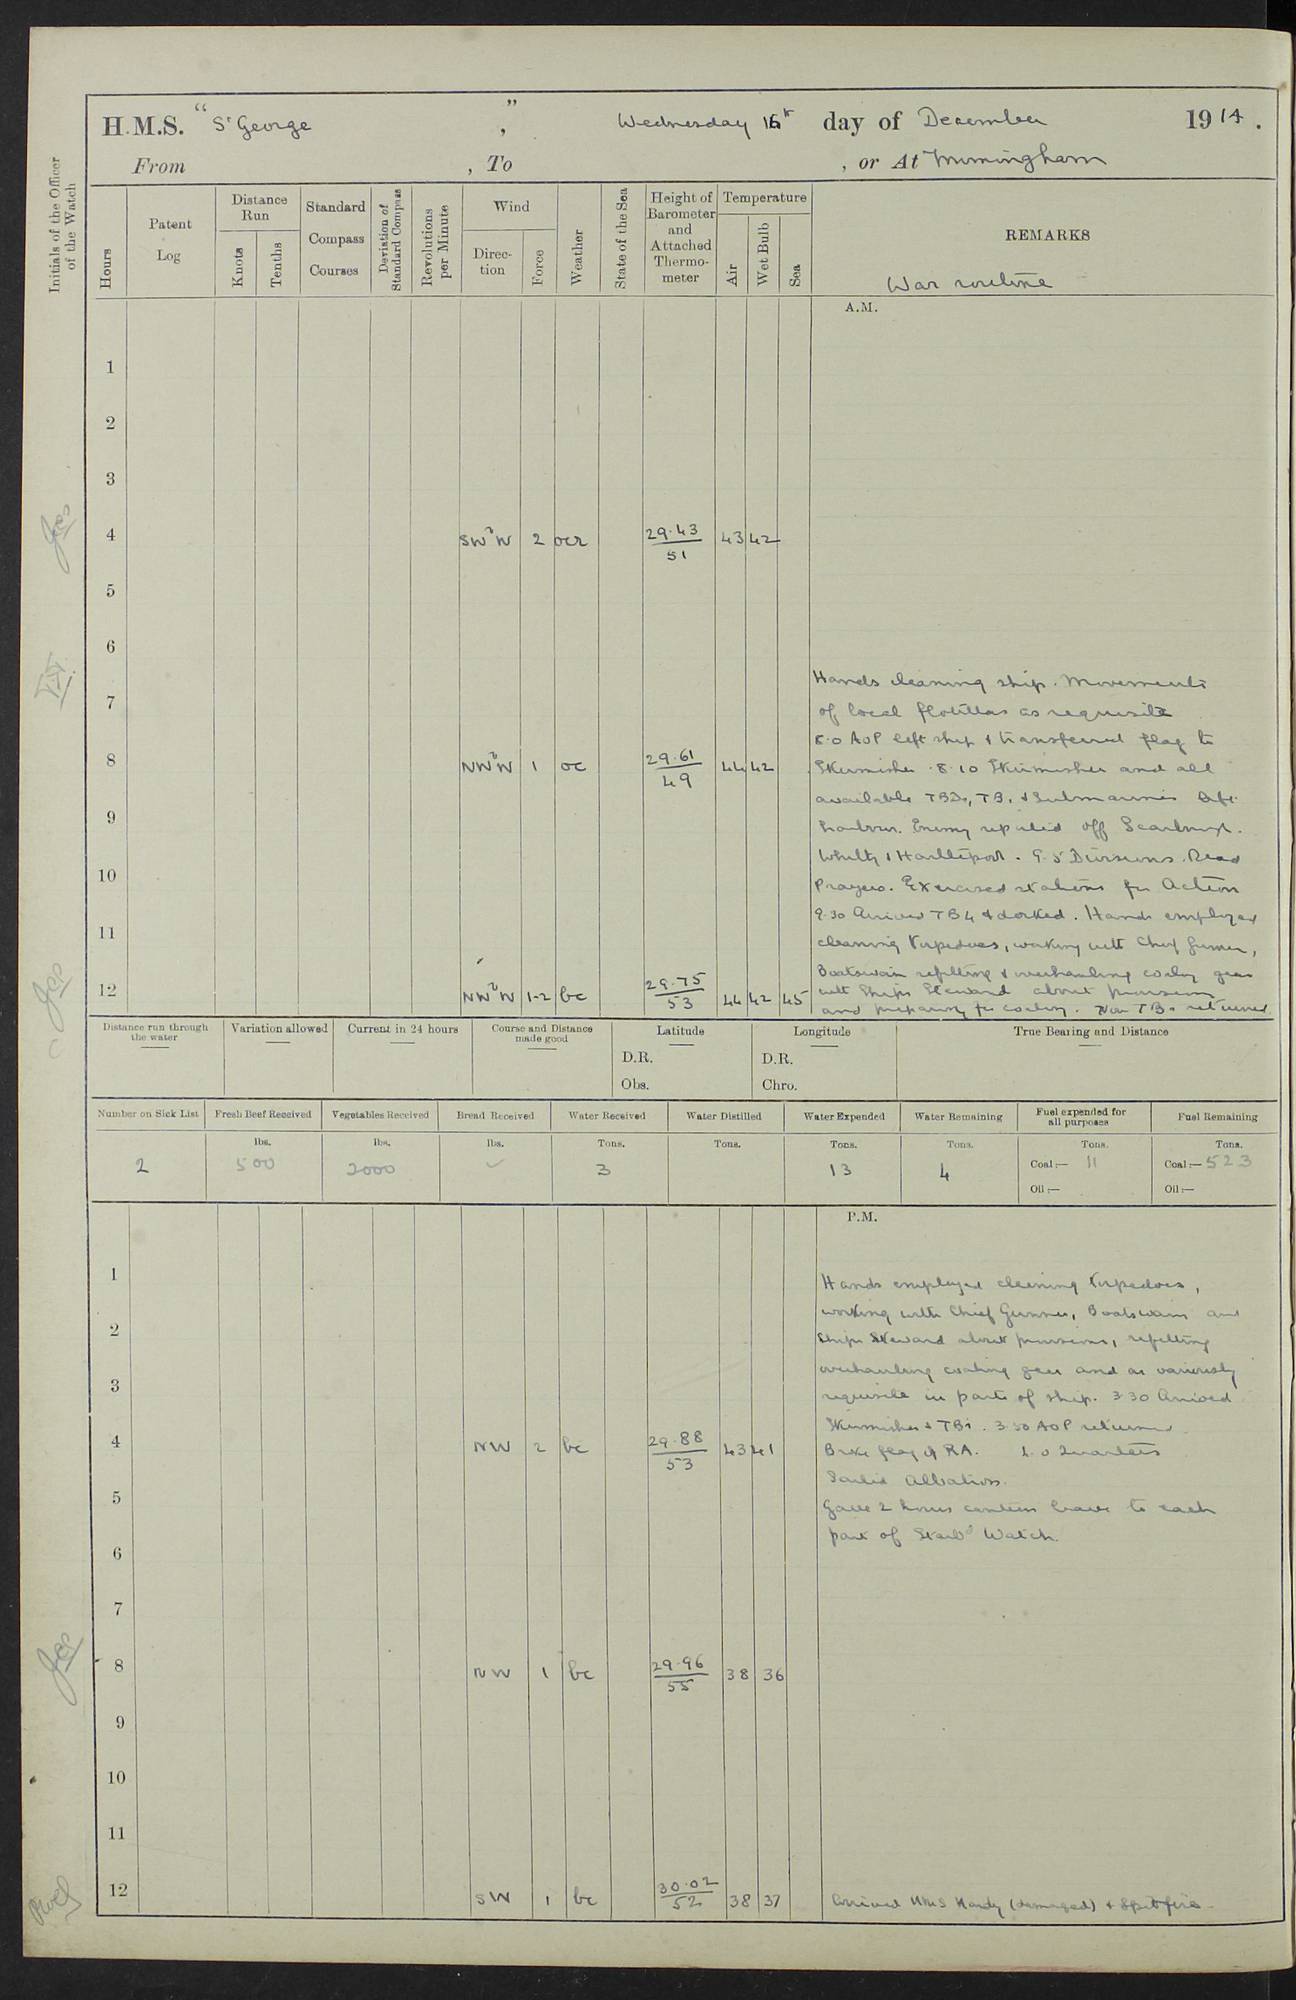 H.M.S. "St George", Wednesday 16th day of December 1914.
From , To , or At Immingham
Initials of the Officer of the Watch
Hours
Patent Log
Distance Run
Knots
Tenths
Standard Compass Courses
Deviation of Standard Compass
Revolutions per Minute
Wind
Direction
Force
Weather
State of the Sea
Height of Barometer and Attached Thermometer
Temperature
Air
Wet Bulb
Sea
REMARKS
War routine
A.M.
1
2
3
4 SWbW 2 ocr 29.43 51 43 42
5
6
Hands cleaning ship. Movements
7
of local flotillas as requisite
8.0 AOP left ship & transferred flag to
8 NWbW 1 oc 29.61 49 44 42
Skirmisher. 8.10 Skirmisher and all
available TBDs, TBs & Submarines left
9
harbour. Enemy reported off Scarboro'.
Whitby & Hartlepool. 9.5 Divisions. Read
10
Prayers. Exercised stations for Action
9.30 Arrived TB 4 & docked. Hands employed
11
cleaning torpedoes, working with Chief Gunner,
Boatswain refitting & overhauling coaling gear
12 NWbW 1-2 bc 29.75 53 44 42 45
with Ships Steward about provisions
and preparing for coaling. Noon TBs returned
Distance run through the water
Variation allowed
Current in 24 hours
Course and Distance made good
Latitude
D.R.
Obs.
Longitude
D.R.
Chro.
True Bearing and Distance
Number on Sick List
Fresh Beef Received
Vegetables Received
Bread Received
Water Received
Water Distilled
Water Expended
Water Remaining
Fuel expended for all purposes
Fuel Remaining
lbs. lbs. lbs. Tons. Tons. Tons. Tons. Tons. Tons.
2 500 2000 3 13 4 Coal:— 11 Coal:— 523
Oil:— Oil:—
P.M.
1
Hands employed cleaning torpedoes,
working with Chief Gunner, Boatswain and
2
Ships Steward about provisions, refitting
overhauling coaling gear and as variously
3
requisite in parts of ship. 3.30 Arrived
Skirmisher & TBs. 3.50 AOP returned.
4 NW 2 bc 29.88 53 43 41
Broke flag of RA. 4.0 Quarters
Sailed Albatross.
5
Gave 2 hours canteen leave to each
part of Starbd Watch.
6
7
8 NW 1 bc 29.96 55 38 36
9
10
11
12 SW 1 bc 30.02 52 38 37
Arrived HMS Hardy (damaged) & Spitfire.